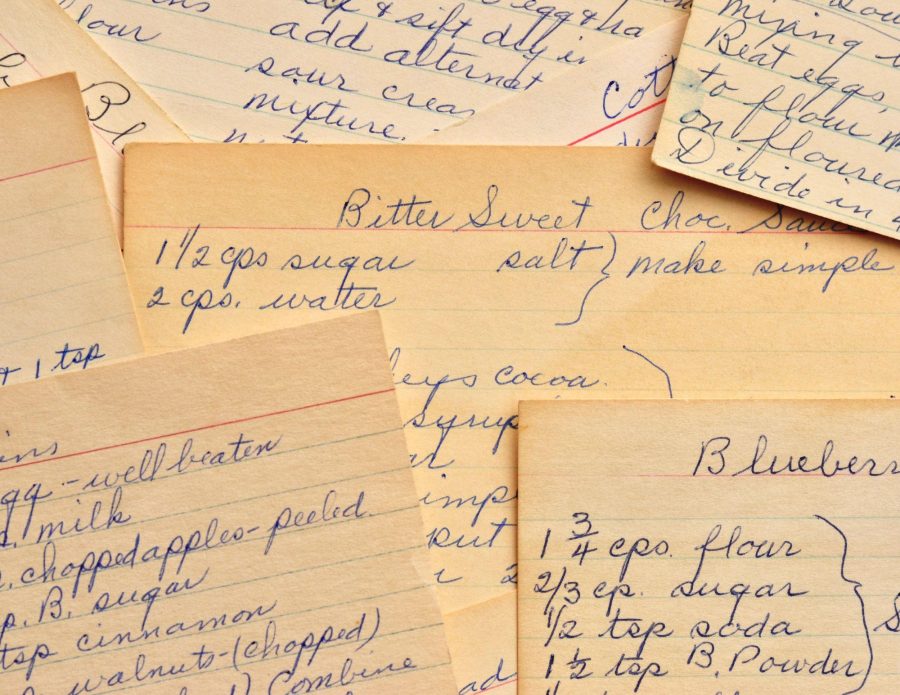 our
& sift dry in
add alternat
sour crea
mixture.
Cott
Bl
mixing
Beat eggs,
to flour m
on floured
Divide in
Bitter Sweet Choc. Sauce
1 1/2 cps sugar salt } make simple
2 cps. watter
leys cocoa.
syrup
impl
put
2
+ 1 tsp
ins
gg - well beaten
milk
chopped apples - peeled.
p. B. sugar
tsp cinnamon
walnuts - (chopped)
Combine
ad
Blueberr
1 3/4 cps. flour
2/3 cp. sugar
1/2 tsp soda
1 1/2 tsp B. Powder
S